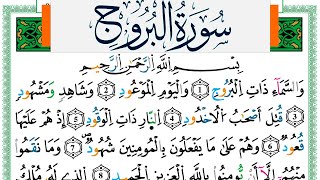 سُورَةُ الْبُرُوجِ
بِسْمِ اللَّهِ الرَّحْمَٰنِ الرَّحِيمِ
وَالسَّمَآءِ ذَاتِ الْبُرُوجِ ١ وَالْيَوْمِ الْمَوْعُودِ ٢ وَشَاهِدٍ وَمَشْهُودٍ
٣ قُتِلَ أَصْحَٰبُ الْأُخْدُودِ ٤ النَّارِ ذَاتِ الْوَقُودِ ٥ إِذْ هُمْ عَلَيْهَا
قُعُودٌ ٦ وَهُمْ عَلَىٰ مَا يَفْعَلُونَ بِالْمُؤْمِنِينَ شُهُودٌ ٧ وَمَا نَقَمُوا
مِنْهُمْ إِلَّآ أَن يُؤْمِنُوا بِاللَّهِ الْعَزِيزِ الْحَمِيدِ ٨ الَّذِي لَهُ مُلْكُ